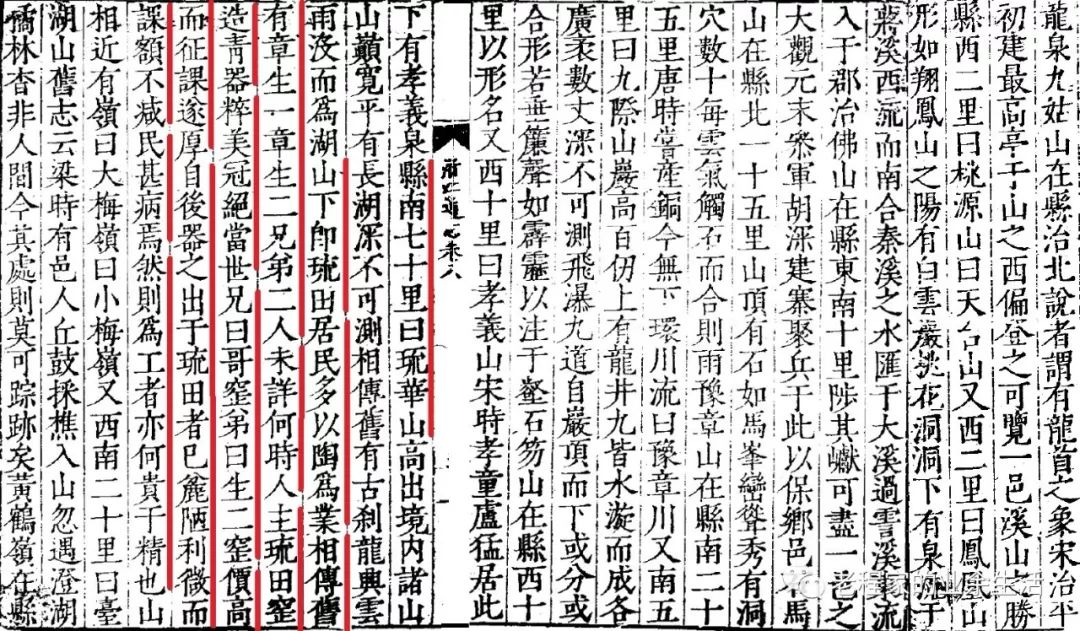 龍泉九姑山在縣治北說者謂有龍首之象宋治平
初建最高亭于山之西偏登之可覽一邑溪山之勝
縣西二里曰桃源山曰天台山又西二里曰鳳凰山
形如翔鳳山之陽有白雲巖桃花洞洞下有泉于
蔣溪西流而南合秦溪之水匯于大溪過霅溪東流
入于郡治佛山在縣東南十里陟其巘可盡一邑之
大觀元末叅軍胡深建寨聚兵于此以保鄉邑石馬
山在縣北一十五里山頂有石如馬峯巒聳秀有洞
穴數十每雲氣觸石而合則雨豫章山在縣南二十
五里唐時嘗產銅今無下環川流曰豫章川又南五
里曰九際山巖高百仞上有龍井九皆水漩而成各
廣袤數丈深不可測飛瀑九道自巖頂而下或分或
合形若垂簾聲如霹靂以注于壑石笏山在縣西十
里以形名又西十里曰孝義山宋時孝童盧猛居此
浙江通志卷八
下有孝義泉縣南七十里曰琉華山高出境內諸山
山巔寬平有長湖深不可測相傳舊有古刹龍興雲
雨沒而為湖山下即琉田居民多以陶為業相傳舊
有章生一章生二兄弟二人未詳何時人主琉田窑
造青器粹美冠絕當世兄曰哥窑弟曰生二窑價高
而征課遂厚自後器之出于琉田者已麄陋利微而
課額不減民甚病焉然則為工者亦何貴于精也山
相近有嶺曰大梅嶺曰小梅嶺又西南二十里曰臺
湖山舊志云梁時有邑人丘鼓採樵入山忽遇澄湖
橘林杳非人間今其處則莫可踪跡矣黃鶴嶺在縣